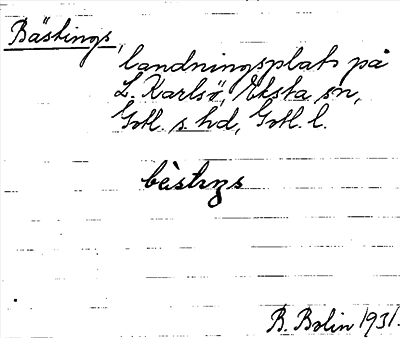 Bästings,
landningsplats på
L. Karlsö, Eksta sn,
Gotl. s. hd, Gotl. l.
B. Bolin 1931.